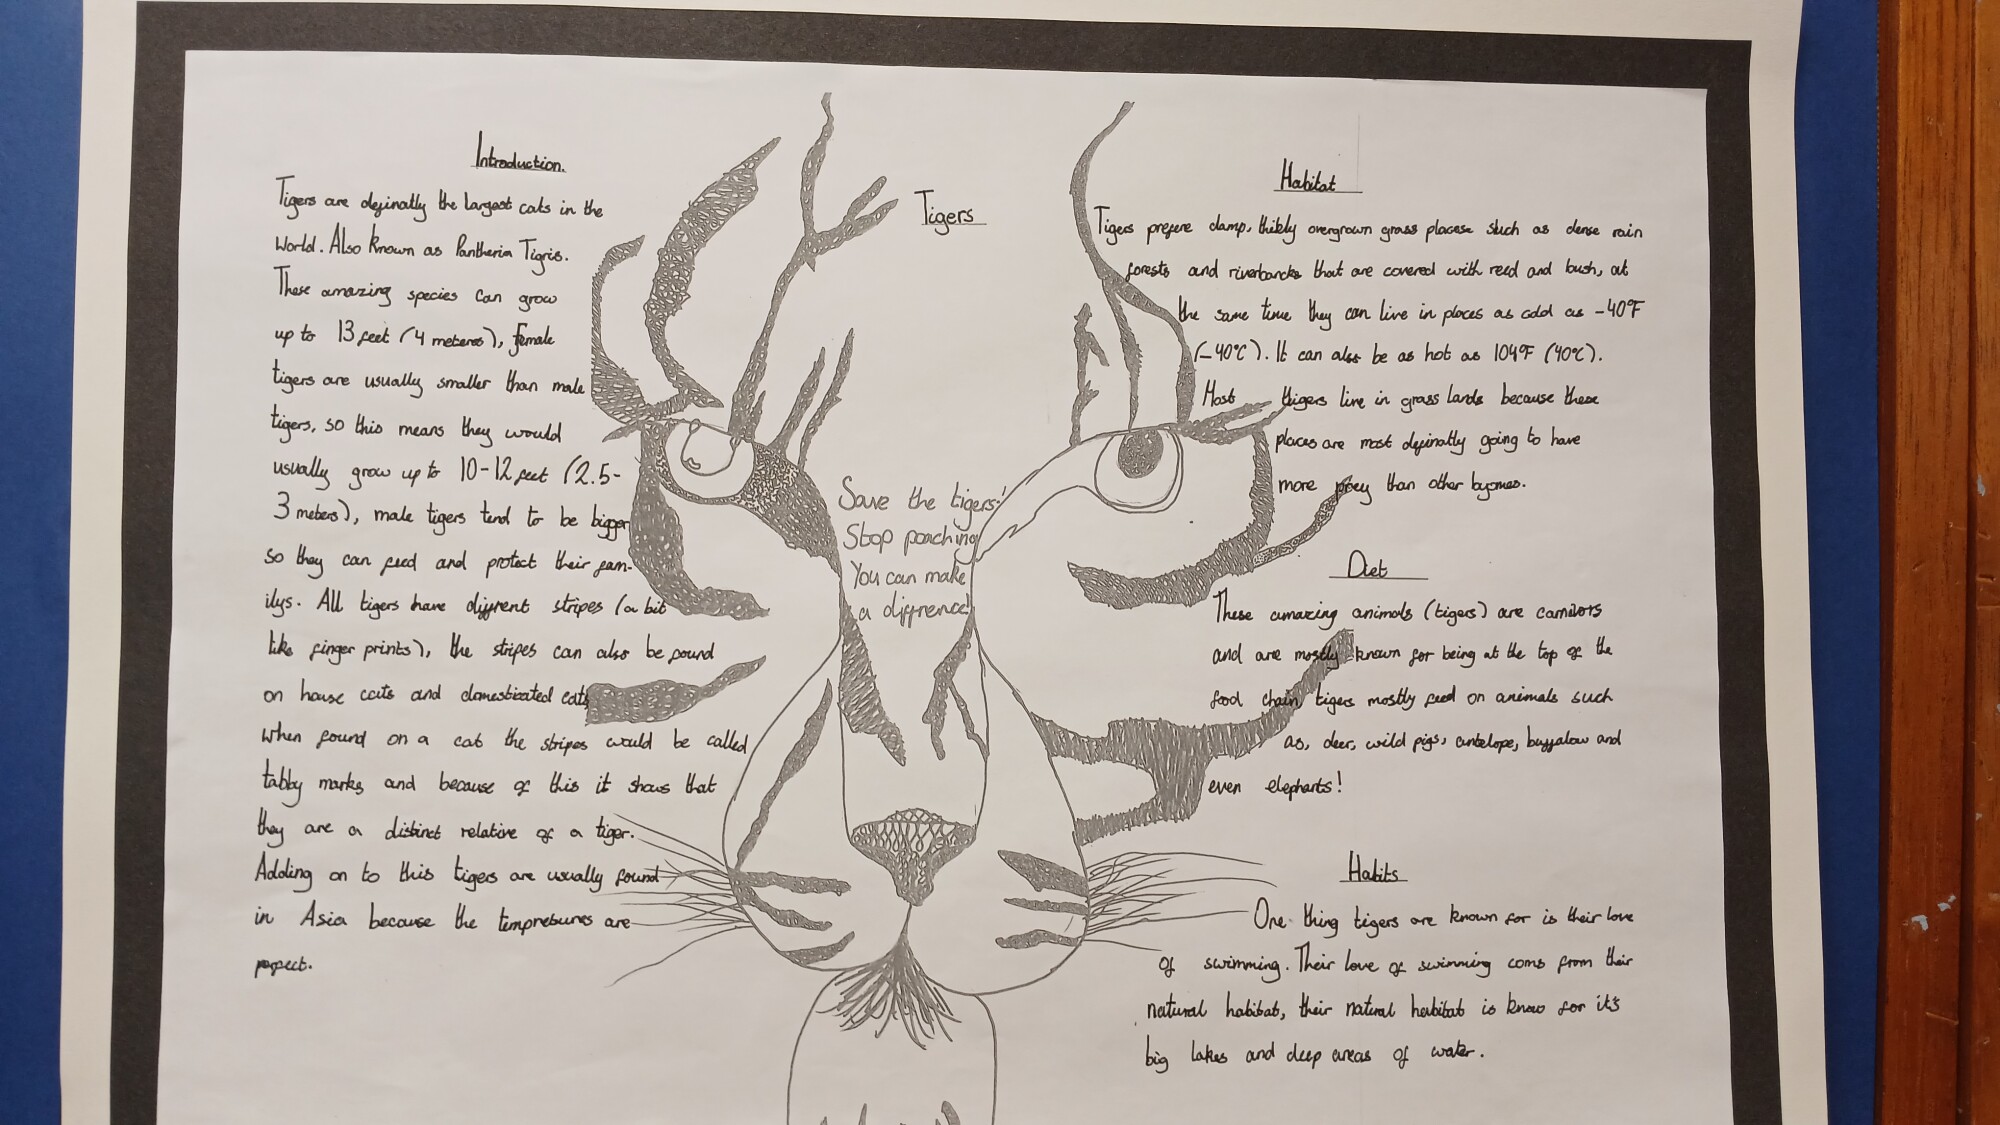 Tigers
Introduction.
Tigers are definatly the largest cats in the
World. Also known as Pantheria Tigris.
These amazing species can grow
up to 13 feet (4 meteres), female
tigers are usually smaller than male
tigers, so this means they would
usually grow up to 10-12 feet (2.5-
3 meters), male tigers tend to be bigger
so they can feed and protect their fam-
ilys. All tigers have diffrent stripes (a bit
like finger prints), the stripes can also be found
on house cats and domesticated cats
when found on a cat the stripes would be called
tabby marks and because of this it shows that
they are a distinct relative of a tiger.
Adding on to this tigers are usually found
in Asia because the tempretures are
perfect.
Save the tigers!
Stop poaching
You can make
a diffrence!
Habitat
Tigers prefere damp, thikly overgrown grass places such as dense rain
forests and riverbancks that are covered with reed and bush, at
the same time they can live in places as cold as -40°F
(-40°C). It can also be as hot as 104°F (40°C).
Most tigers live in grass lands because these
places are most definatly going to have
more prey than other byomes.
Diet
These amazing animals (tigers) are carnivors
and are mostly known for being at the top of the
food chain, tigers mostly feed on animals such
as, deer, wild pigs, antelope, buffalow and
even elephants!
Habits
One thing tigers are known for is their love
of swimming. Their love of swimming coms from their
natural habitat, their natural habitat is know for it's
big lakes and deep areas of water.